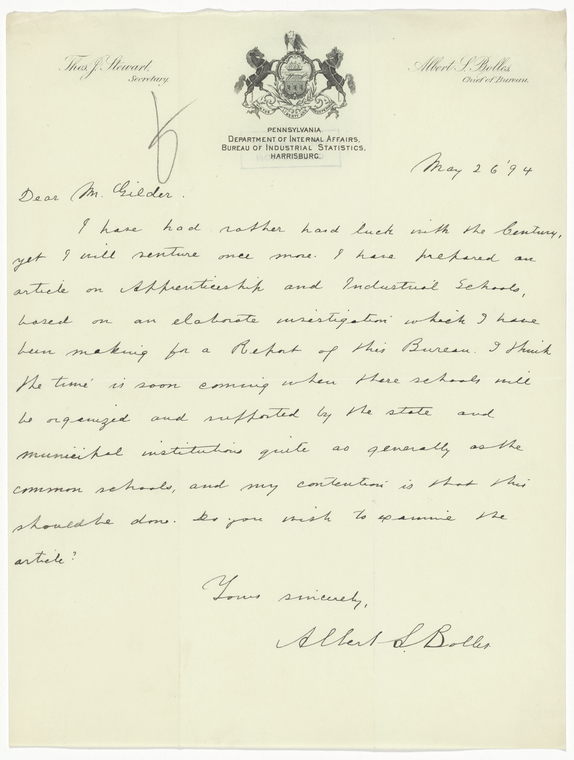 Thos. J. Stewart,
Secretary.
Albert S. Bolles,
Chief of Bureau.
PENNSYLVANIA.
DEPARTMENT OF INTERNAL AFFAIRS,
BUREAU OF INDUSTRIAL STATISTICS,
HARRISBURG.
May 26 '94
Dear Mr. Gilder.
I have had rather hard luck with the Century,
yet I will venture once more. I have prepared an
article on Apprenticeship and Industrial Schools,
based on an elaborate investigation which I have
been making for a Report of this Bureau. I think
the time is soon coming when these schools will
be organized and supported by the state and
municipal institutions quite as generally as the
common schools, and my contention is that this
should be done. Do you wish to examine the
article?
Yours sincerely,
Albert S. Bolles